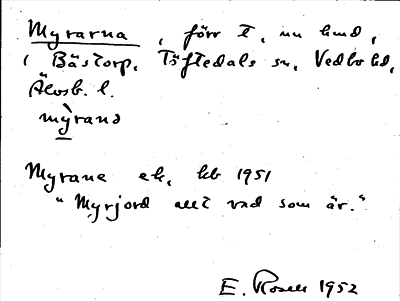 Myrarna, förr t, nu hmd,
i Bästorp, Töftedals sn, Vedbo hd,
Älvsb. l.
myràna
Myrane ek, hb 1951
"Myrjord allt vad som är."
E. Rosell 1952